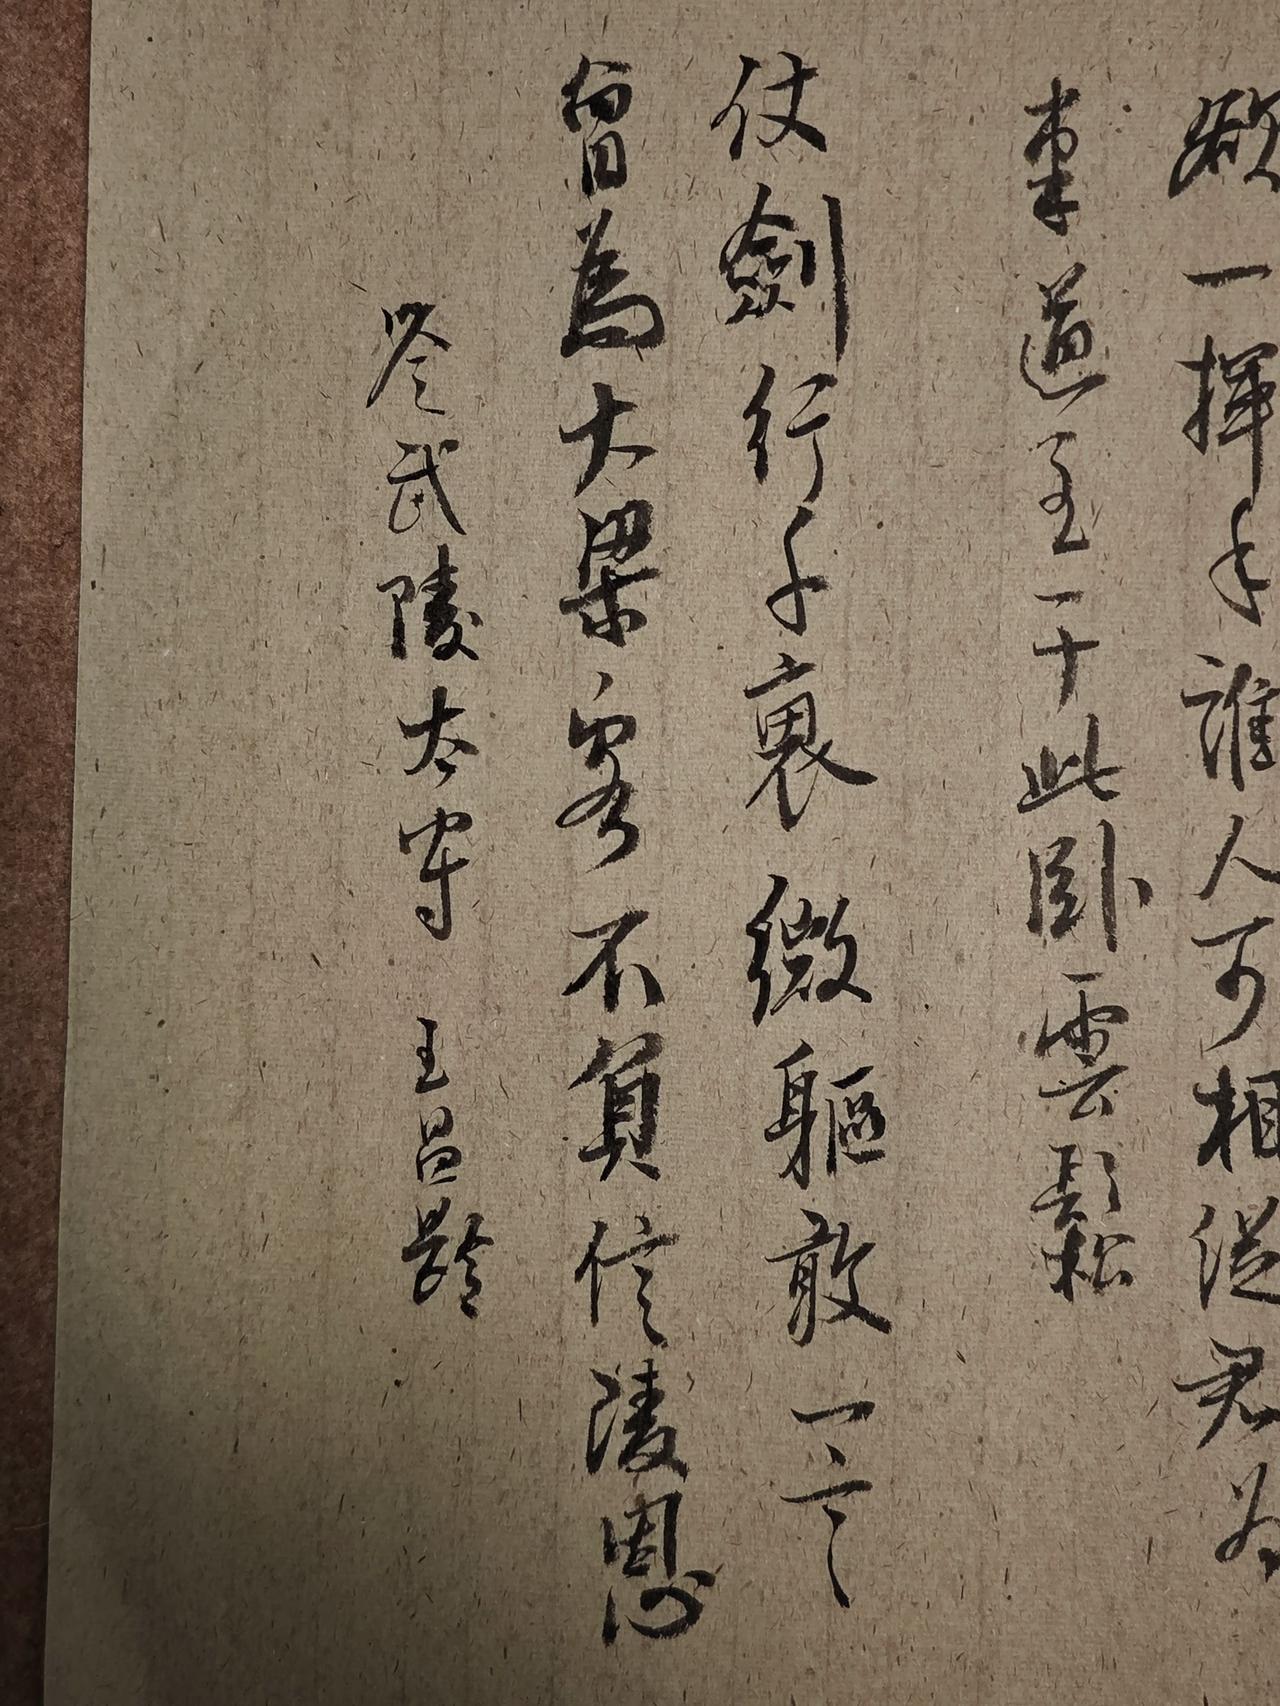 欲一揮手誰人可相從君为
東道主于此臥雲鬆
仗劍行千裏微軀敢一言
曾為大梁客不負信陵恩
答武陵太守 王昌齡